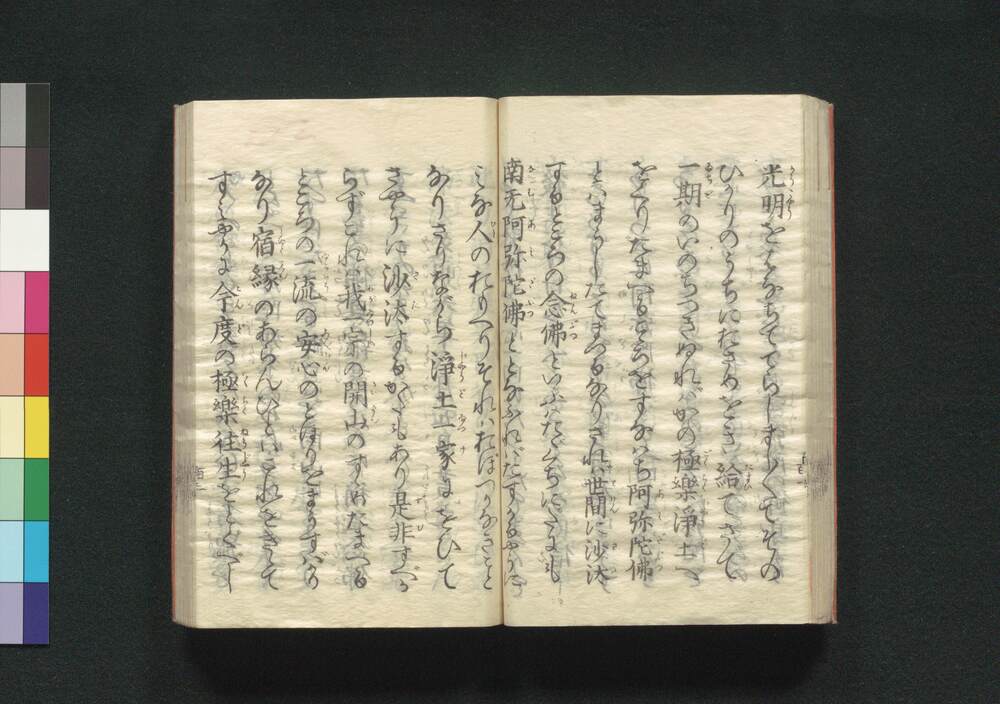 光明をはなちててらしましくてその
ひかりのうちにおさめをき給てさて
一期のいのちつきぬれはかの極樂浄土へ
をくりたまへるこゝろをすなはち阿弥陀佛
とはまうしたてまつるなりされは世間に沙汰
するところの念佛といふはたゝくちにたにも
南无阿弥陀佛ととなふれはたすかるやうに
みな人のおもへりそれはおほつかなきこと
なりさりなから浄土一家にをひて
さやうに沙汰するかたもあり是非すへか
らすこれは我一宗の開山のすゝめたまへる
ところの一流の安心のとほりをまうすはかり
なり宿縁のあらんひとはこれをきゝて
すみやかに今度の極樂往生をとくへし